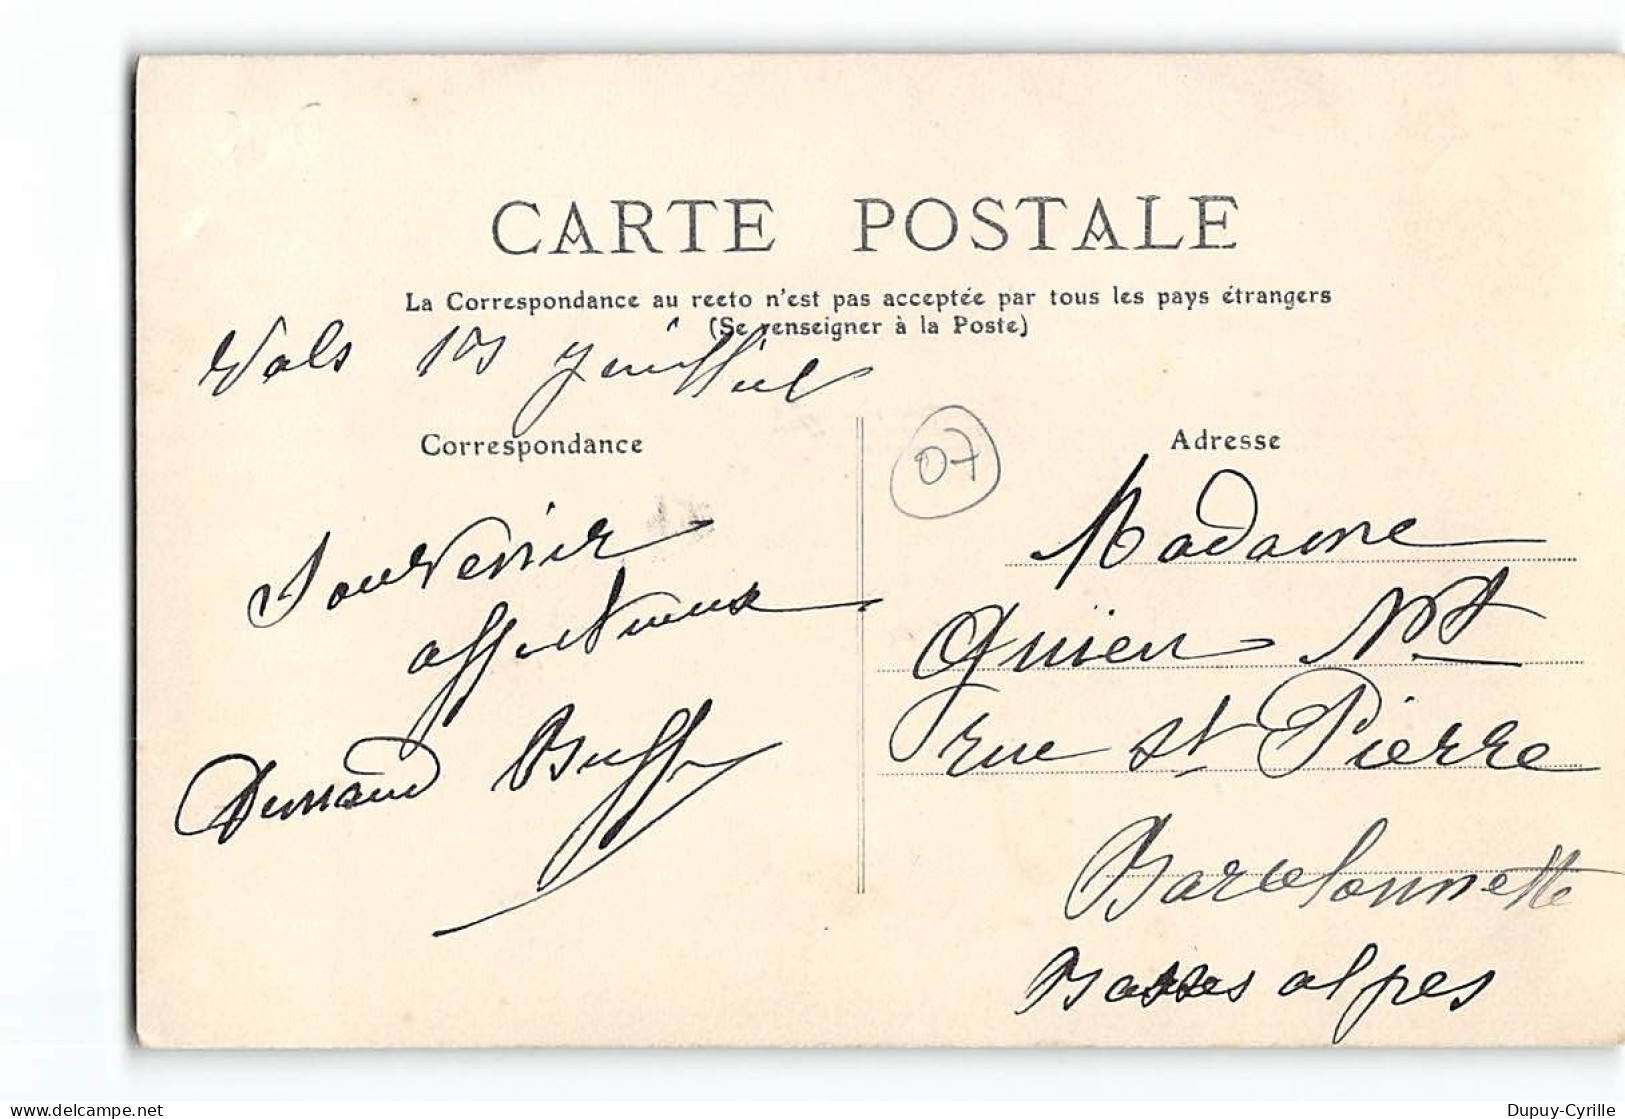 CARTE POSTALE
La Correspondance au recto n'est pas acceptée par tous les pays étrangers
(Se renseigner à la Poste)
Vals 1er juillet
Correspondance
Souvenir
affectueux
07
Adresse
Madame
rue St Pierre
Barcelonnette
Basses alpes
delcampe.net
Dupuy-Cyrille